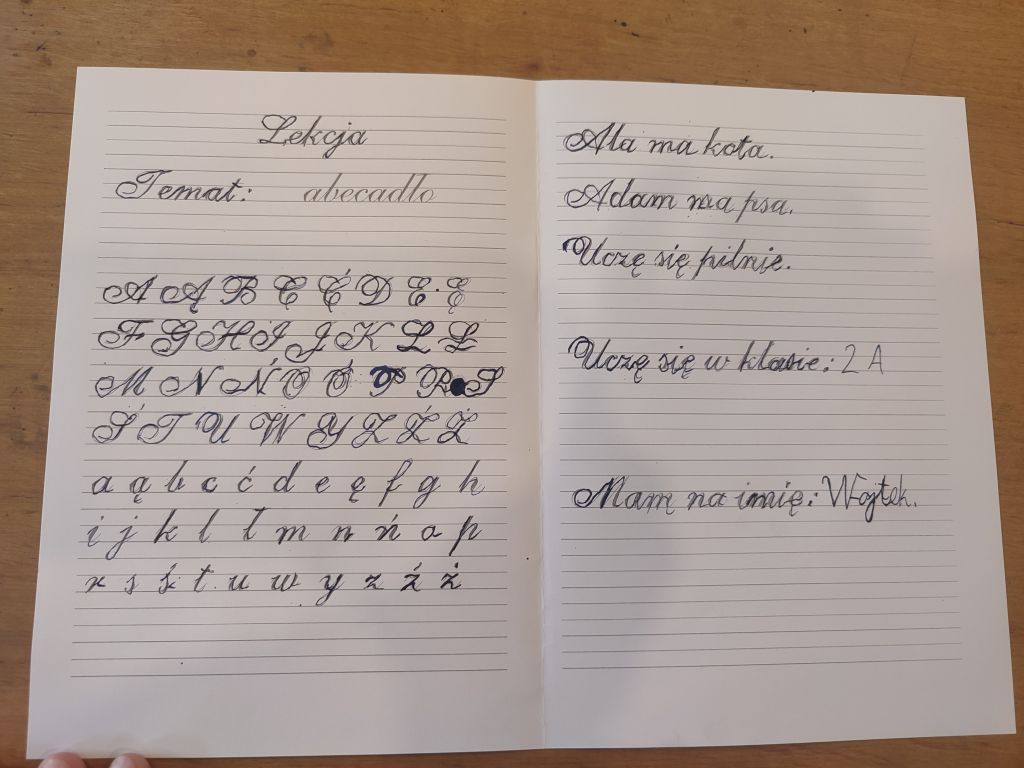 Lekcja
Temat: abecadło
A Ą B C Ć D E Ę
F G H I J K L Ł
M N Ń O Ó P R S
Ś T U W Y Z Ź Ż
a ą b c ć d e ę f g h
i j k l ł m n ń o p
r s ś t u w y z ź ż
Ala ma kota.
Adam ma psa.
Uczę się pilnie.
Uczę się w klasie: 2 A
Mam na imię: Wojtek.